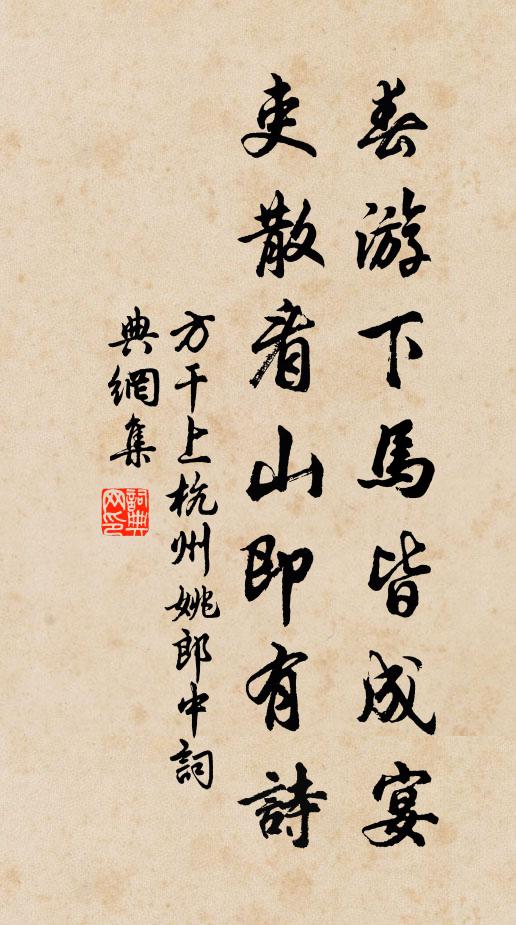 春游下馬皆成宴
吏散看山即有詩
方干上杭州姚郎中詞
典網集
詞典網印